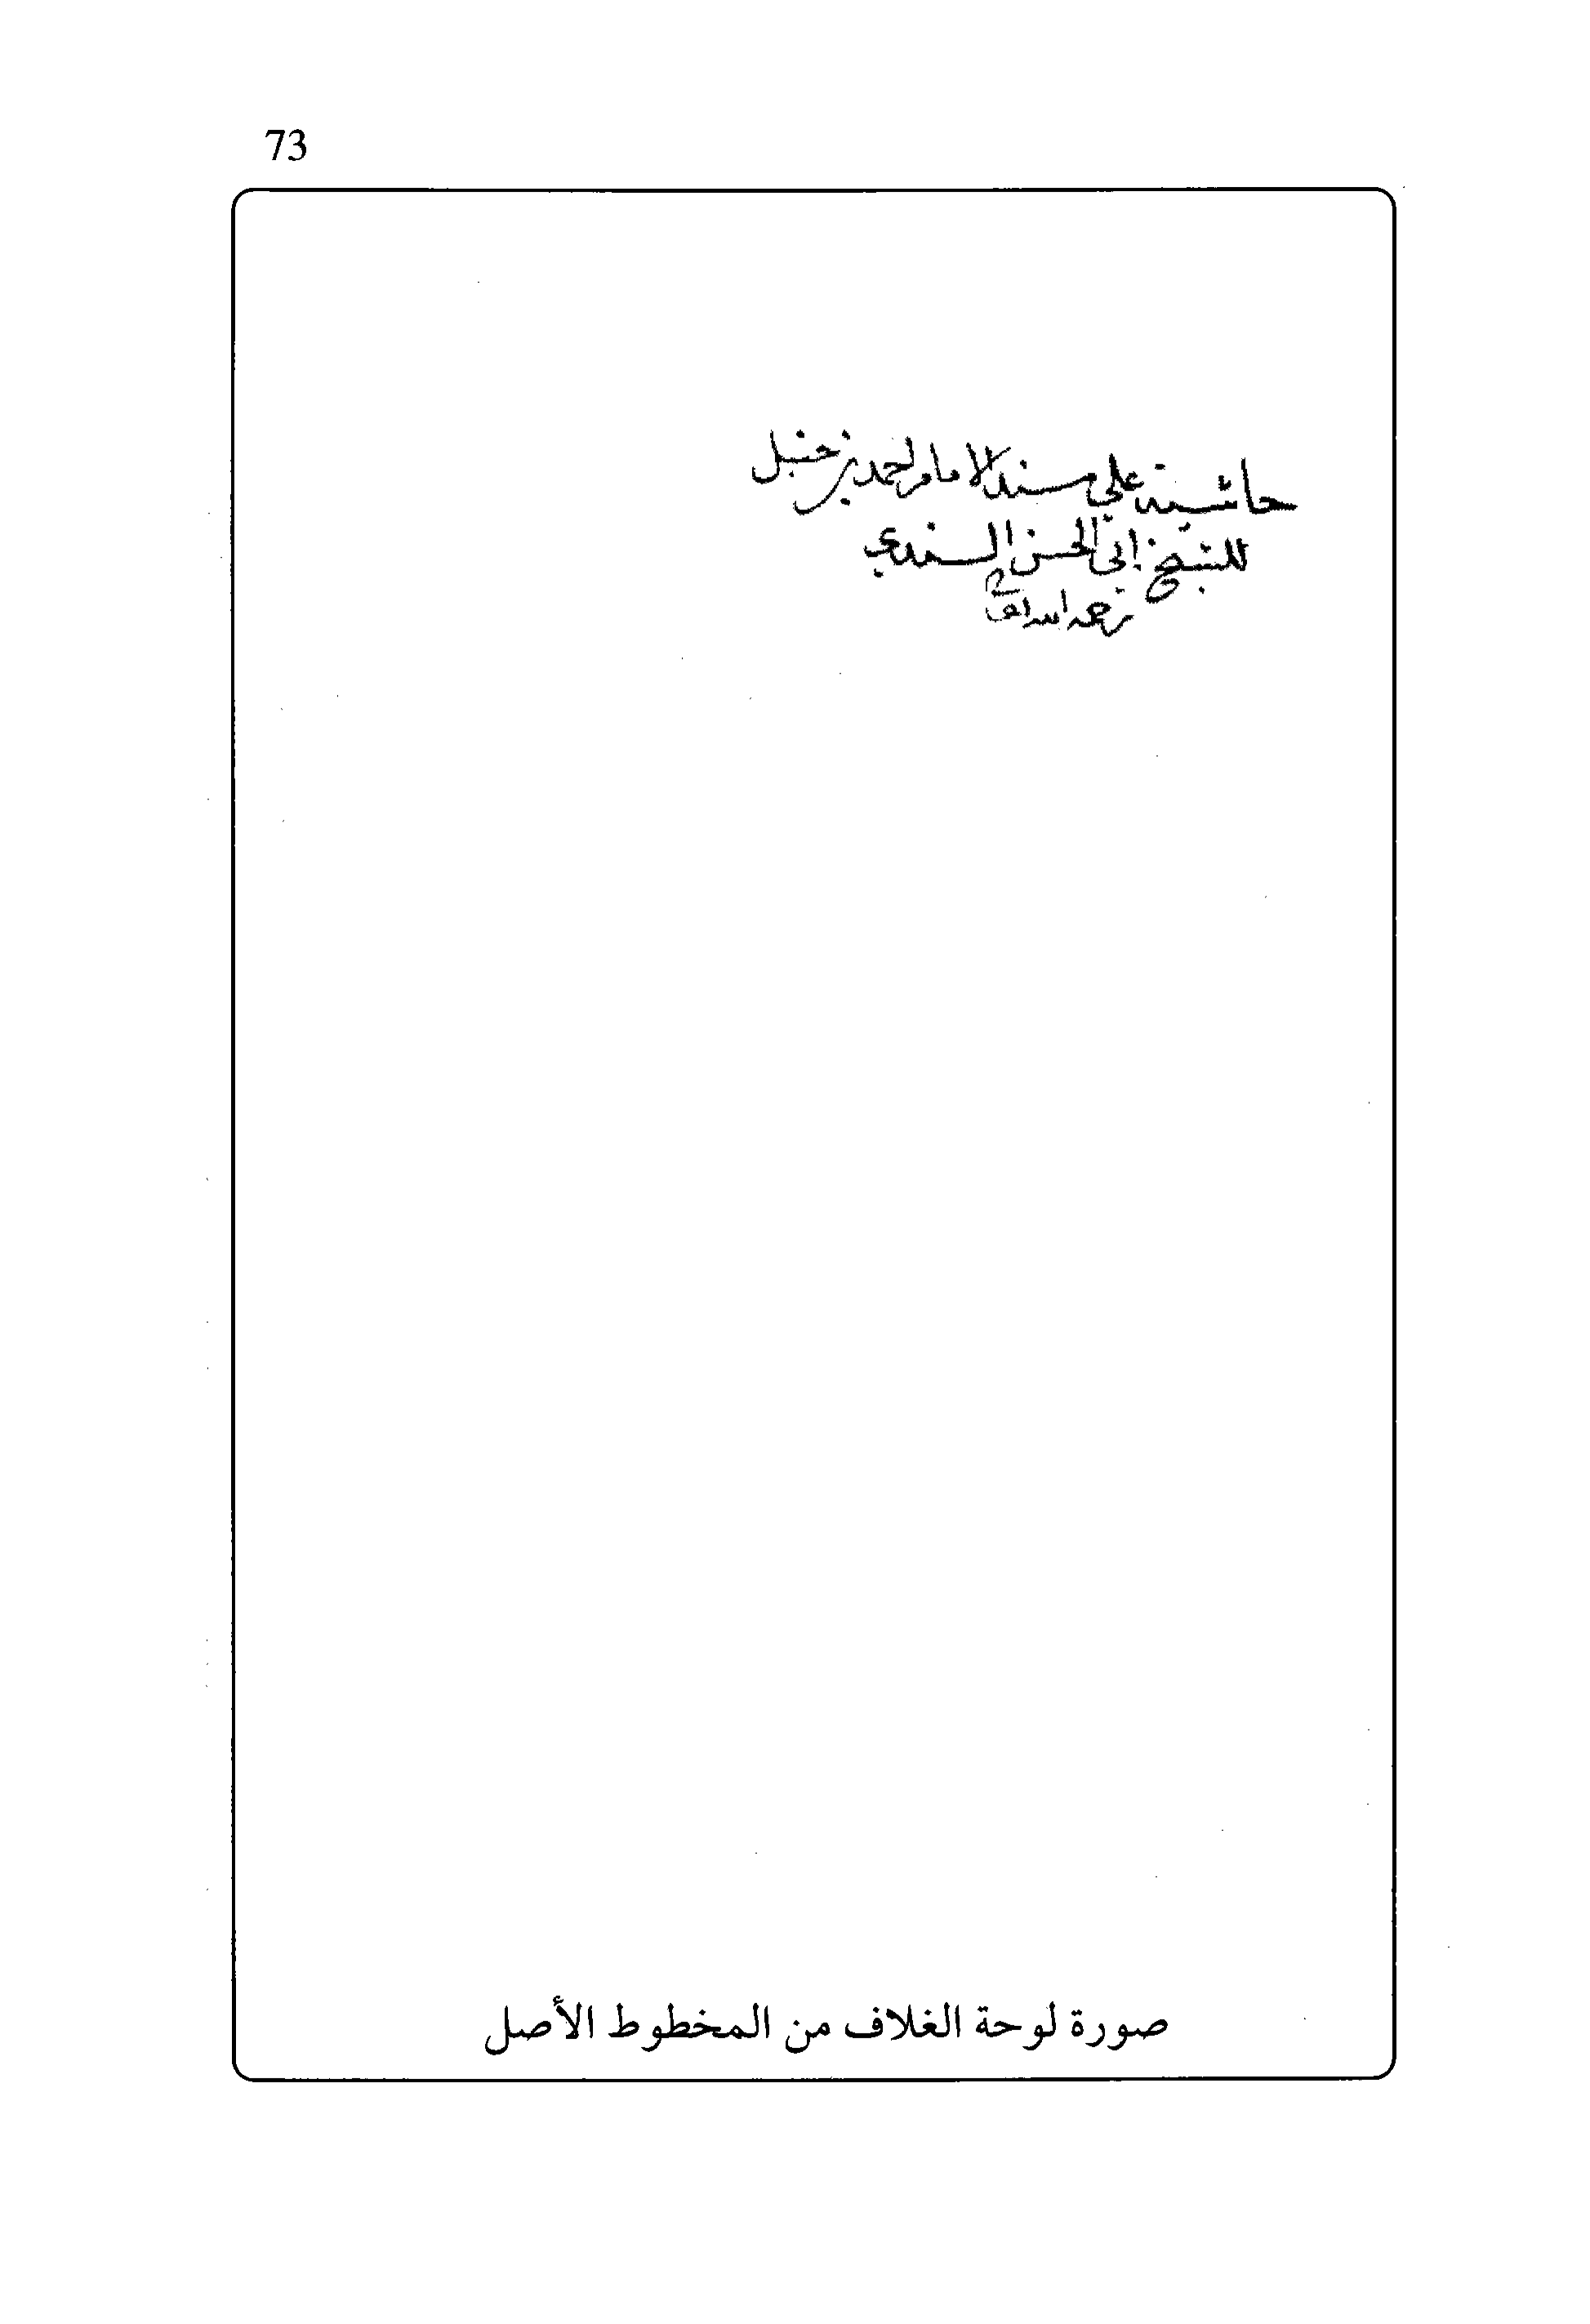 73
حاشية علي مسند الامام احمد بن حنبل
للشيخ ابي الحسن السندي
رحمه الله تعالى
صورة لوحة الغلاف من المخطوط الأصل